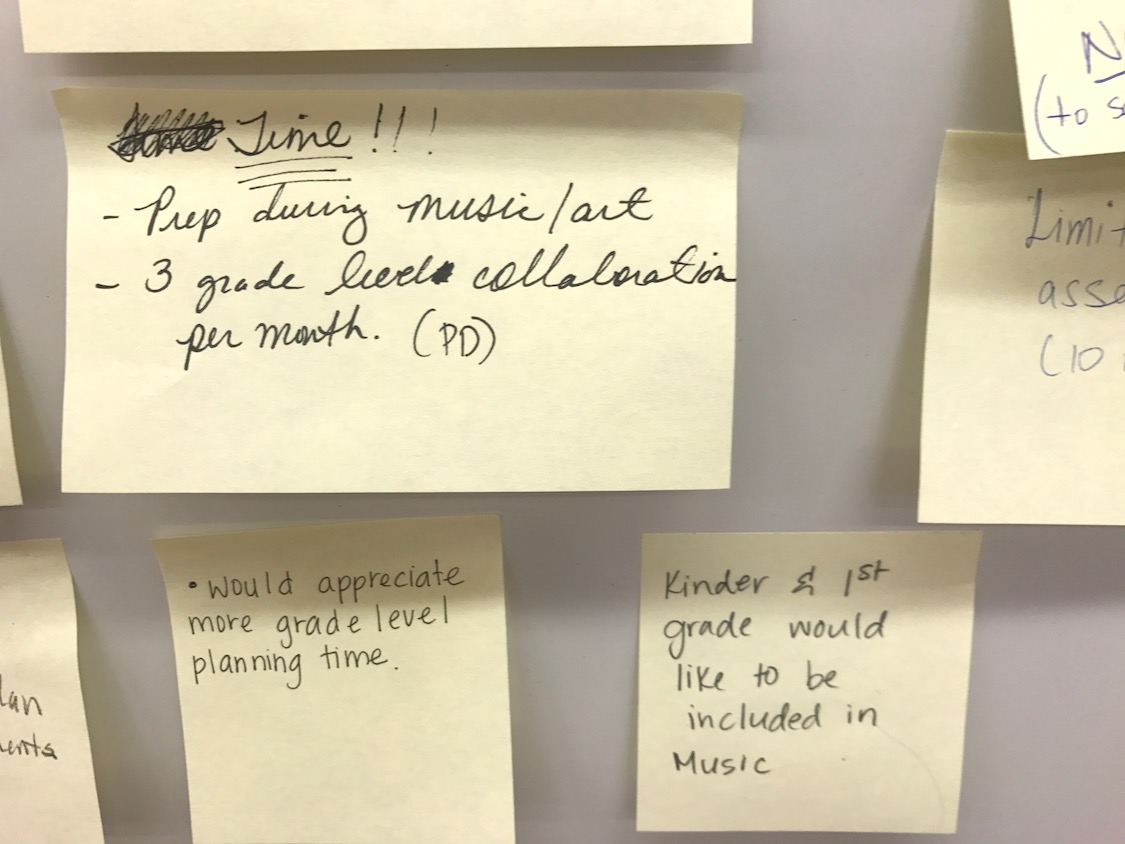 Time !!!
- Prep during music/art
- 3 grade level collaboration
per month. (PD)
• would appreciate
more grade level
planning time.
Kinder & 1st
grade would
like to be
included in
Music
(to
(10